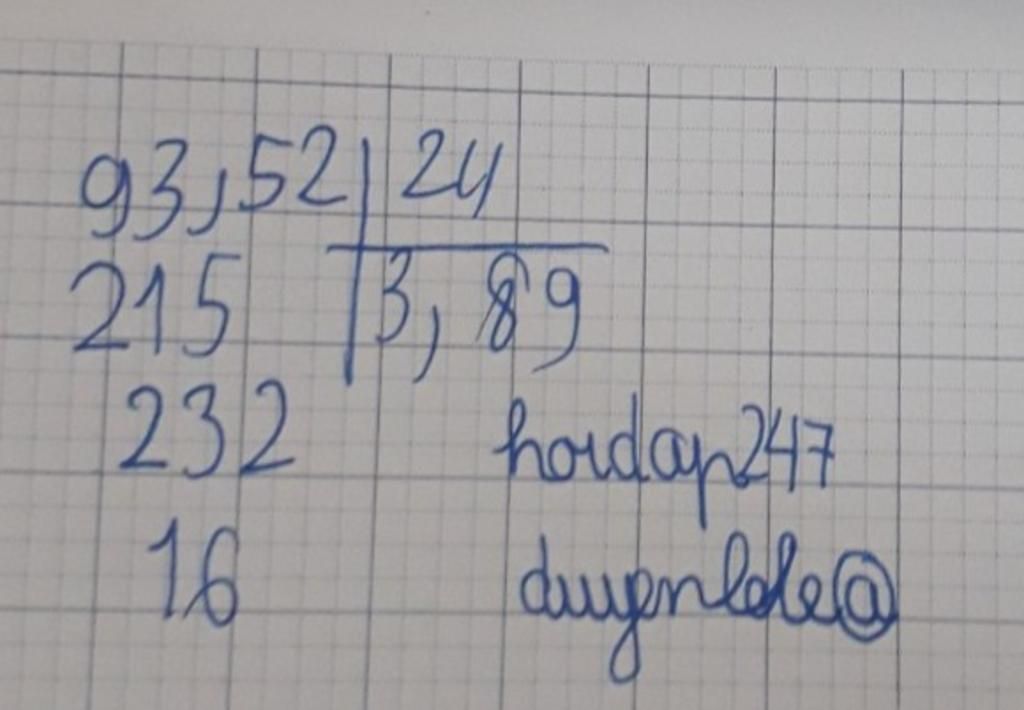 93,52 24
215 3,89
232 hoidap247
16 duyenlele@